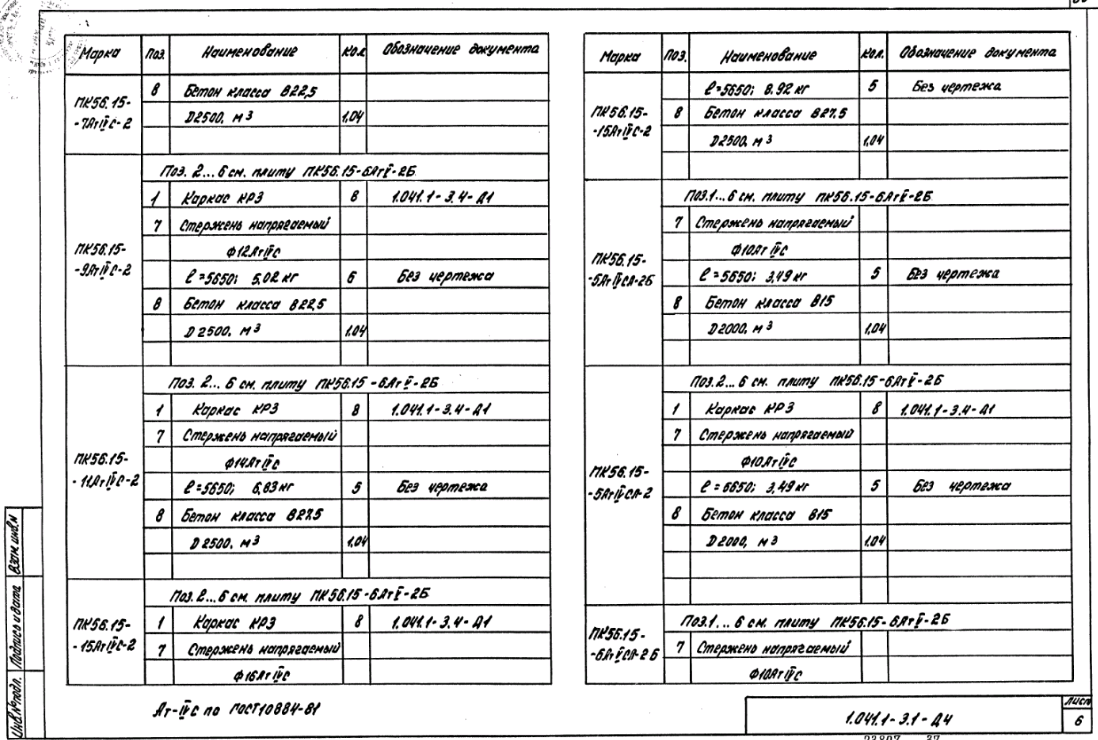 Марка Поз. Наименование Кол. Обозначение документа
ПК56.15-
-7АтIVС-2
8 Бетон класса В22,5
D2500, м3 1,04
Поз. 2... 6 см. плиту ПК56.15-6АтV-2Б
ПК56.15-
-9АтIVС-2
1 Каркас КР3 8 1.041.1-3.4-Д1
7 Стержень напрягаемый
Ф12АтIVС
ℓ=5650; 5,02 кг 6 Без чертежа
8 Бетон класса В22,5
D 2500, м3 1,04
Поз. 2... 6 см. плиту ПК56.15-6АтV-2Б
ПК56.15-
-11АтIVС-2
1 Каркас КР3 8 1.041.1-3.4-Д1
7 Стержень напрягаемый
Ф14АтIVС
ℓ=5650; 6,83 кг 5 Без чертежа
8 Бетон класса В27,5
D 2500, м3 1,04
Поз. 2... 6 см. плиту ПК56.15-6АтV-2Б
ПК56.15-
-15АтIVС-2
1 Каркас КР3 8 1.041.1-3.4-Д1
7 Стержень напрягаемый
Ф16АтIVС
Ат-IVС по ГОСТ 10884-81
Марка Поз. Наименование Кол. Обозначение документа
ПК56.15-
-15АтIVС-2
ℓ=5650; 8.92 кг 5 Без чертежа
8 Бетон класса В27,5
D2500, м3 1,04
Поз.1... 6 см. плиту ПК56.15-6АтV-2Б
ПК56.15-
-5АтIVСЛ-2Б
7 Стержень напрягаемый
Ф10Ат IVС
ℓ=5650; 3,49 кг 5 Без чертежа
8 Бетон класса В15
D2000, м3 1,04
Поз.2... 6 см. плиту ПК56.15-6АтV-2Б
ПК56.15-
-5АтIVСЛ-2
1 Каркас КР3 8 1.041.1-3.4-Д1
7 Стержень напрягаемый
Ф10АтIVС
ℓ=5650; 3,49 кг 5 Без чертежа
8 Бетон класса В15
D2000, м3 1,04
Поз.1... 6 см. плиту ПК56.15-6АтV-2Б
ПК56.15-
-6АтIVСЛ-2Б
7 Стержень напрягаемый
Ф10АтIVС
1.041.1-3.1-Д4
Лист
6
Взам. инв.№
Подпись и дата
Инв.№подл.